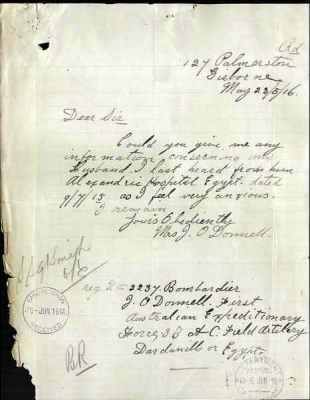 Ad
127 Palmerston
Gisborne
May 23/5/16.
Dear Sir
Could you give me any
information conserning my
Husband I last heard from him
Alexandria Hospital Egypt dated
9/7/15 as I feel very anxious.
I remain
Yours Obediently
Mrs J. O Donnell.
reg 2237 Bombardier
J. O Donnell. First
Australian Expeditionary
Force 3 B A C. Field Artillery
Dardanills or Egypt.
RECEIVED
BR